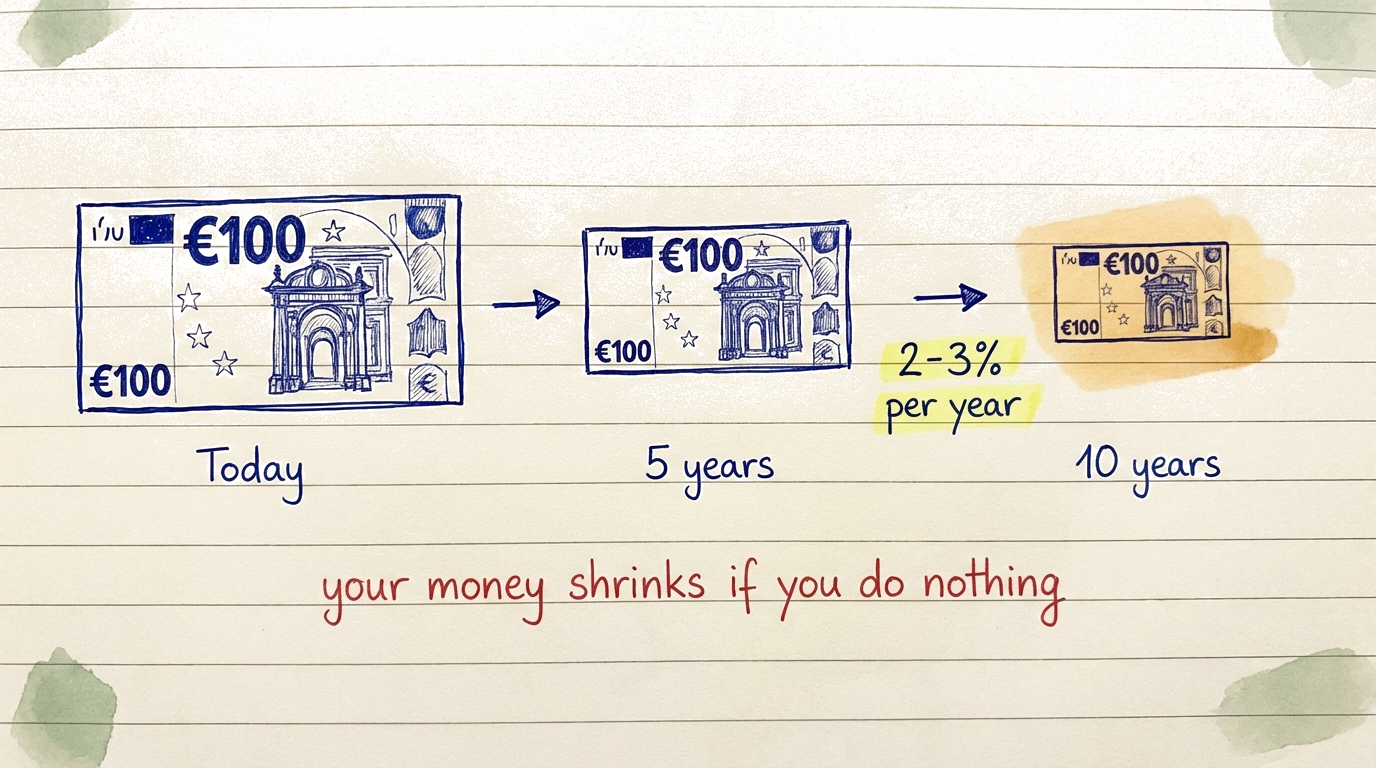 €100
€100
Today
€100
€100
5 years
2-3%
per year
€100
€100
10 years
your money shrinks if you do nothing